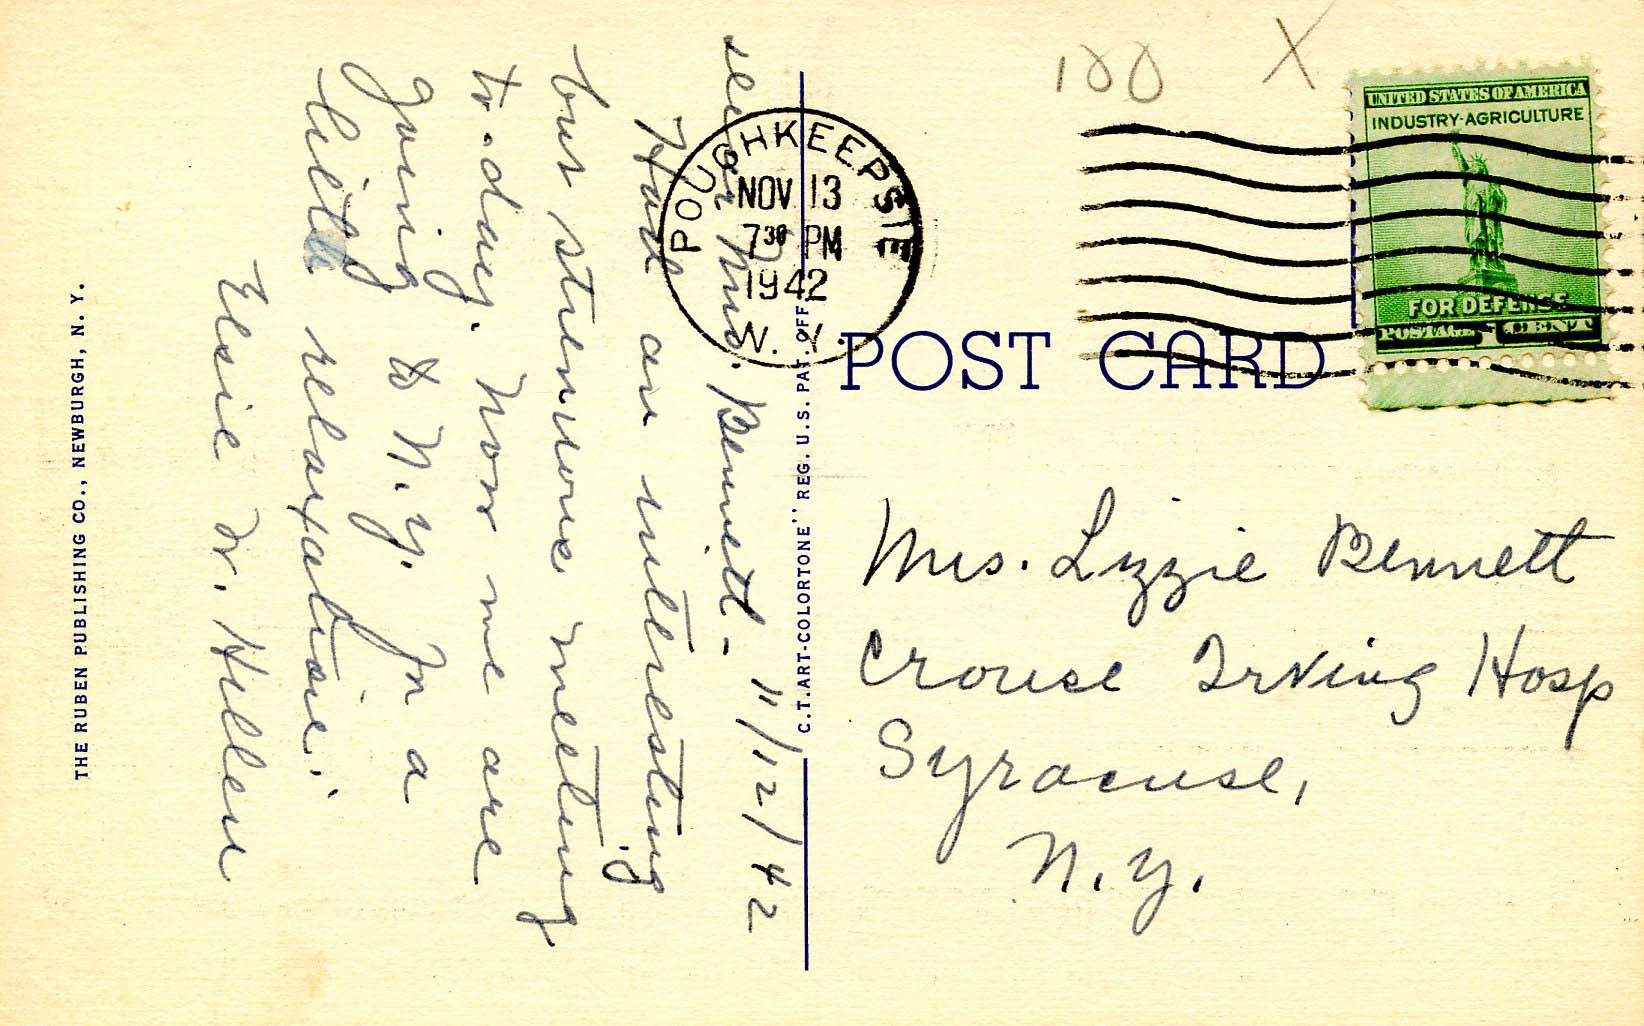 Dear Mrs. Bennett - 11/12/42
Had an interesting
but strenuous meeting
to-day. Now we are
going to N.Y. for a
little relaxation.
Elsie W.
THE RUBEN PUBLISHING CO., NEWBURGH, N. Y.
C.T. ART-COLORTONE" REG. U.S. PAT. OFF.
POUGHKEEPSIE
NOV 13
7 30 PM
1942
N. Y.
POST CARD
100 X
UNITED STATES OF AMERICA
INDUSTRY-AGRICULTURE
FOR DEFENSE
POSTAGE 1 CENT
Mrs. Lizzie Bennett
Crouse Irving Hosp
Syracuse,
N.Y.